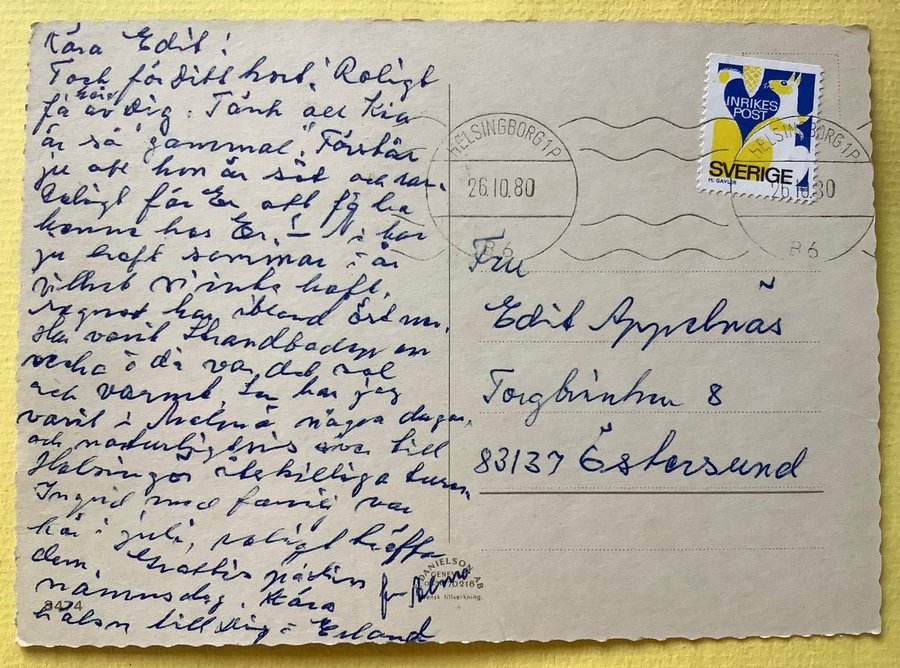 Kära Edit!
Tack för Ditt kort! Roligt
få höra av Dig. Tänk att Kia
är så "gammal". Förstår
ju att hon är söt och
Roligt för Er att få ha
henne hos Er. – Ni har
ju haft sommar i år
vilket vi inte haft.
har ibland öst ner.
Har varit i Strandbaden en
vecka o då var det sol
och varmt. Sen har jag
varit i Malmö några dagar,
och naturligtvis över till
Helsingör åtskilliga turer
Ingrid med familj var
här i juli, roligt träffa
dem. Grattis på
namnsdag. Kära
hälsn till Dig o Erland
fr
INRIKES
POST
SVERIGE
PL. GAVLER
HELSINGBORG 1P
26.10.80
B6
HELSINGBORG 1P
26.10.80
B6
Fru
Edit Appelnäs
8
83137 Östersund
DANIELSON AB
GENEVAD
0430-70218
Svensk tillverkning.
3474